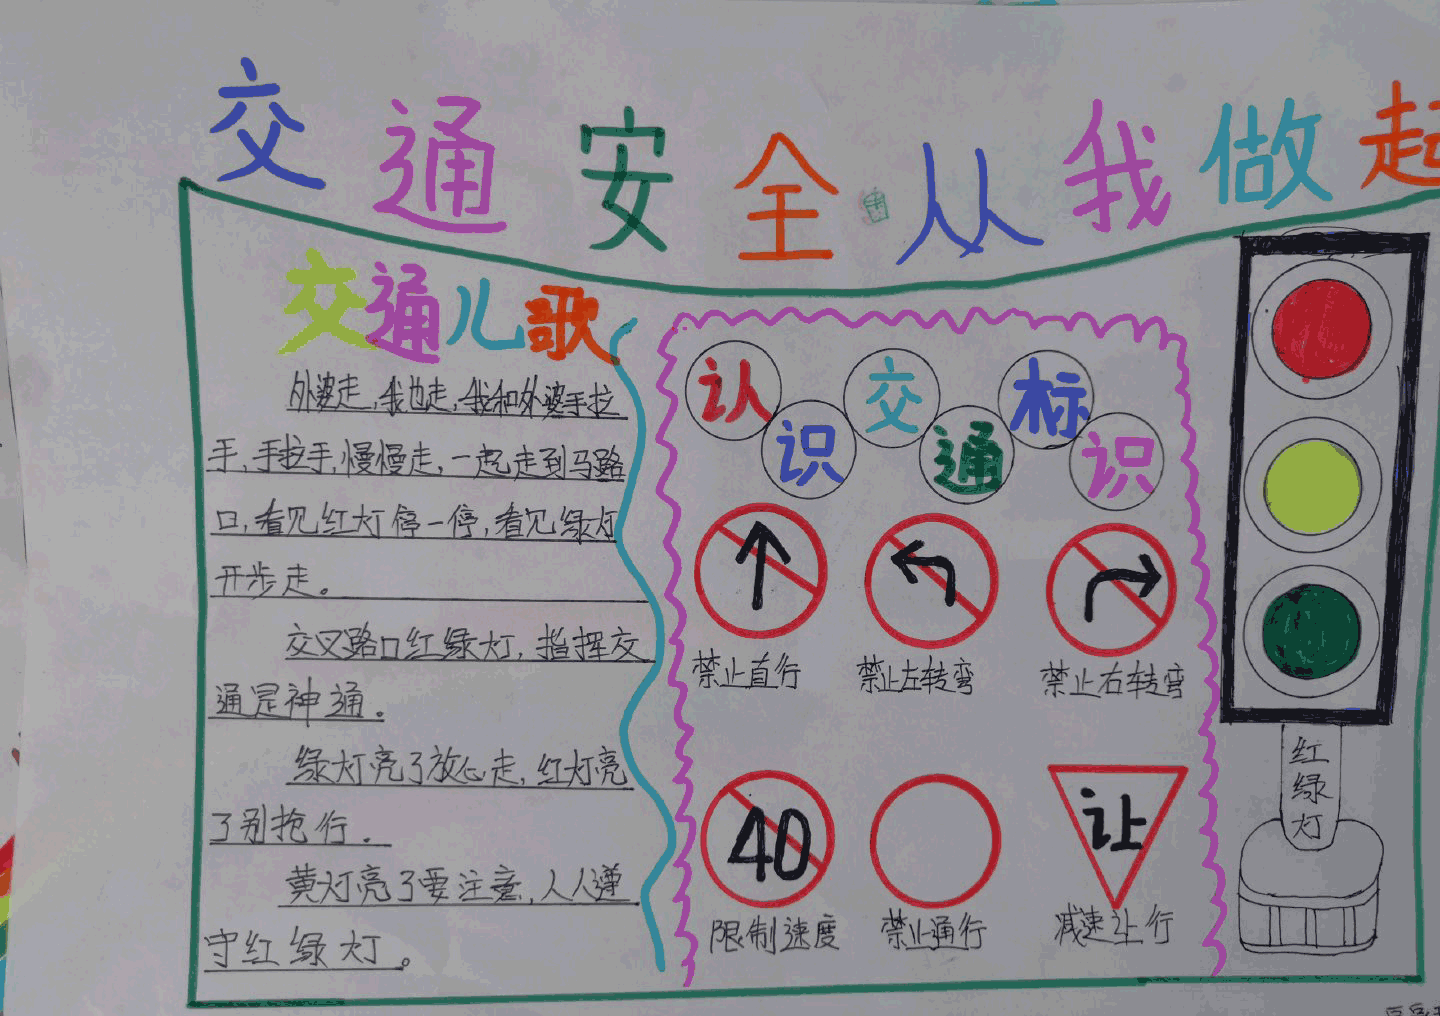 交通安全从我做起
交通儿歌
外婆走,我也走,我和外婆手拉
手,手拉手,慢慢走,一起走到马路
口,看见红灯停一停,看见绿灯
开步走。
交叉路口红绿灯,指挥交
通是神通.
绿灯亮了放心走,红灯亮
了别抢行.
黄灯亮了要注意,人人遵
守红绿灯。
认识交通标识
禁止直行
禁止左转弯
禁止右转弯
40
让
限制速度
禁止通行
减速让行
红
绿
灯